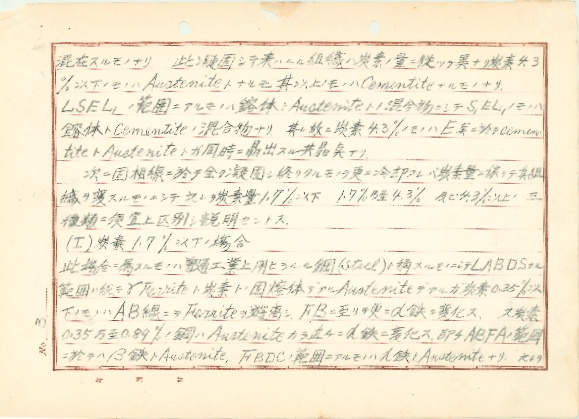 混在スルモノナリ 此ノ凝固シテ来ハルル組織ハ炭素ノ量ニ従ッテ異ナリ炭素4.3
%以下ノモノハAusteniteトナルモ其以上ノモノハCementiteナルモノナリ.
LSEL, ノ範囲ニアルモノハ鎔体トAusteniteトノ混合物ニシテS,EL,ノモノハ
鎔体トCementiteノ混合物ナリ 其レ故ニ炭素4.3%ノモノハE点ニ於テCemen-
titeトAusteniteトガ同時ニ晶出スル共晶点ナリ.
次ニ固相線ニ於テ全ク凝固シ終リタルモノヲ更ニ冷却スレバ炭素量ニ依リテ其組
織ヲ異スルモノニシテ次レヲ炭素量1.7%以下 1.7%乃至4.3% 及ビ4.3%以上ノ三
種類ニ便宜上区別シ説明セントス.
(I)炭素1.7%以下ノ場合
此場合ニ属スルモノハ普通工業上用ヒラルル鋼(Steel)ト稱スルモノニシテLABDSナル
範囲ハ総テγ Ferriteト炭素トノ固鎔体デアルAusteniteデアルガ炭素0.35%以
下ノモノハAB線ニテFerriteヲ遊離シ FBニ至リテ更ニα鉄ニ変化ス. 又炭素
0.35乃至0.89%ノ鋼ハAusteniteカラ直チニα鉄ニ変化ス. 即チABFAノ範囲
ニ於テハβ鉄トAustenite, FBDCノ範囲ニアルモノハα鉄トAusteniteナリ.
No. 3